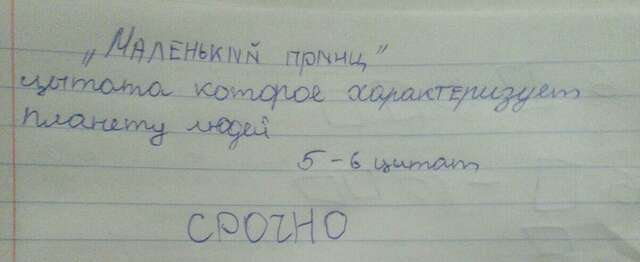 „Маленький принц"
цытата которое характеризует
планету людей
5-6 цитат
СРОЧНО